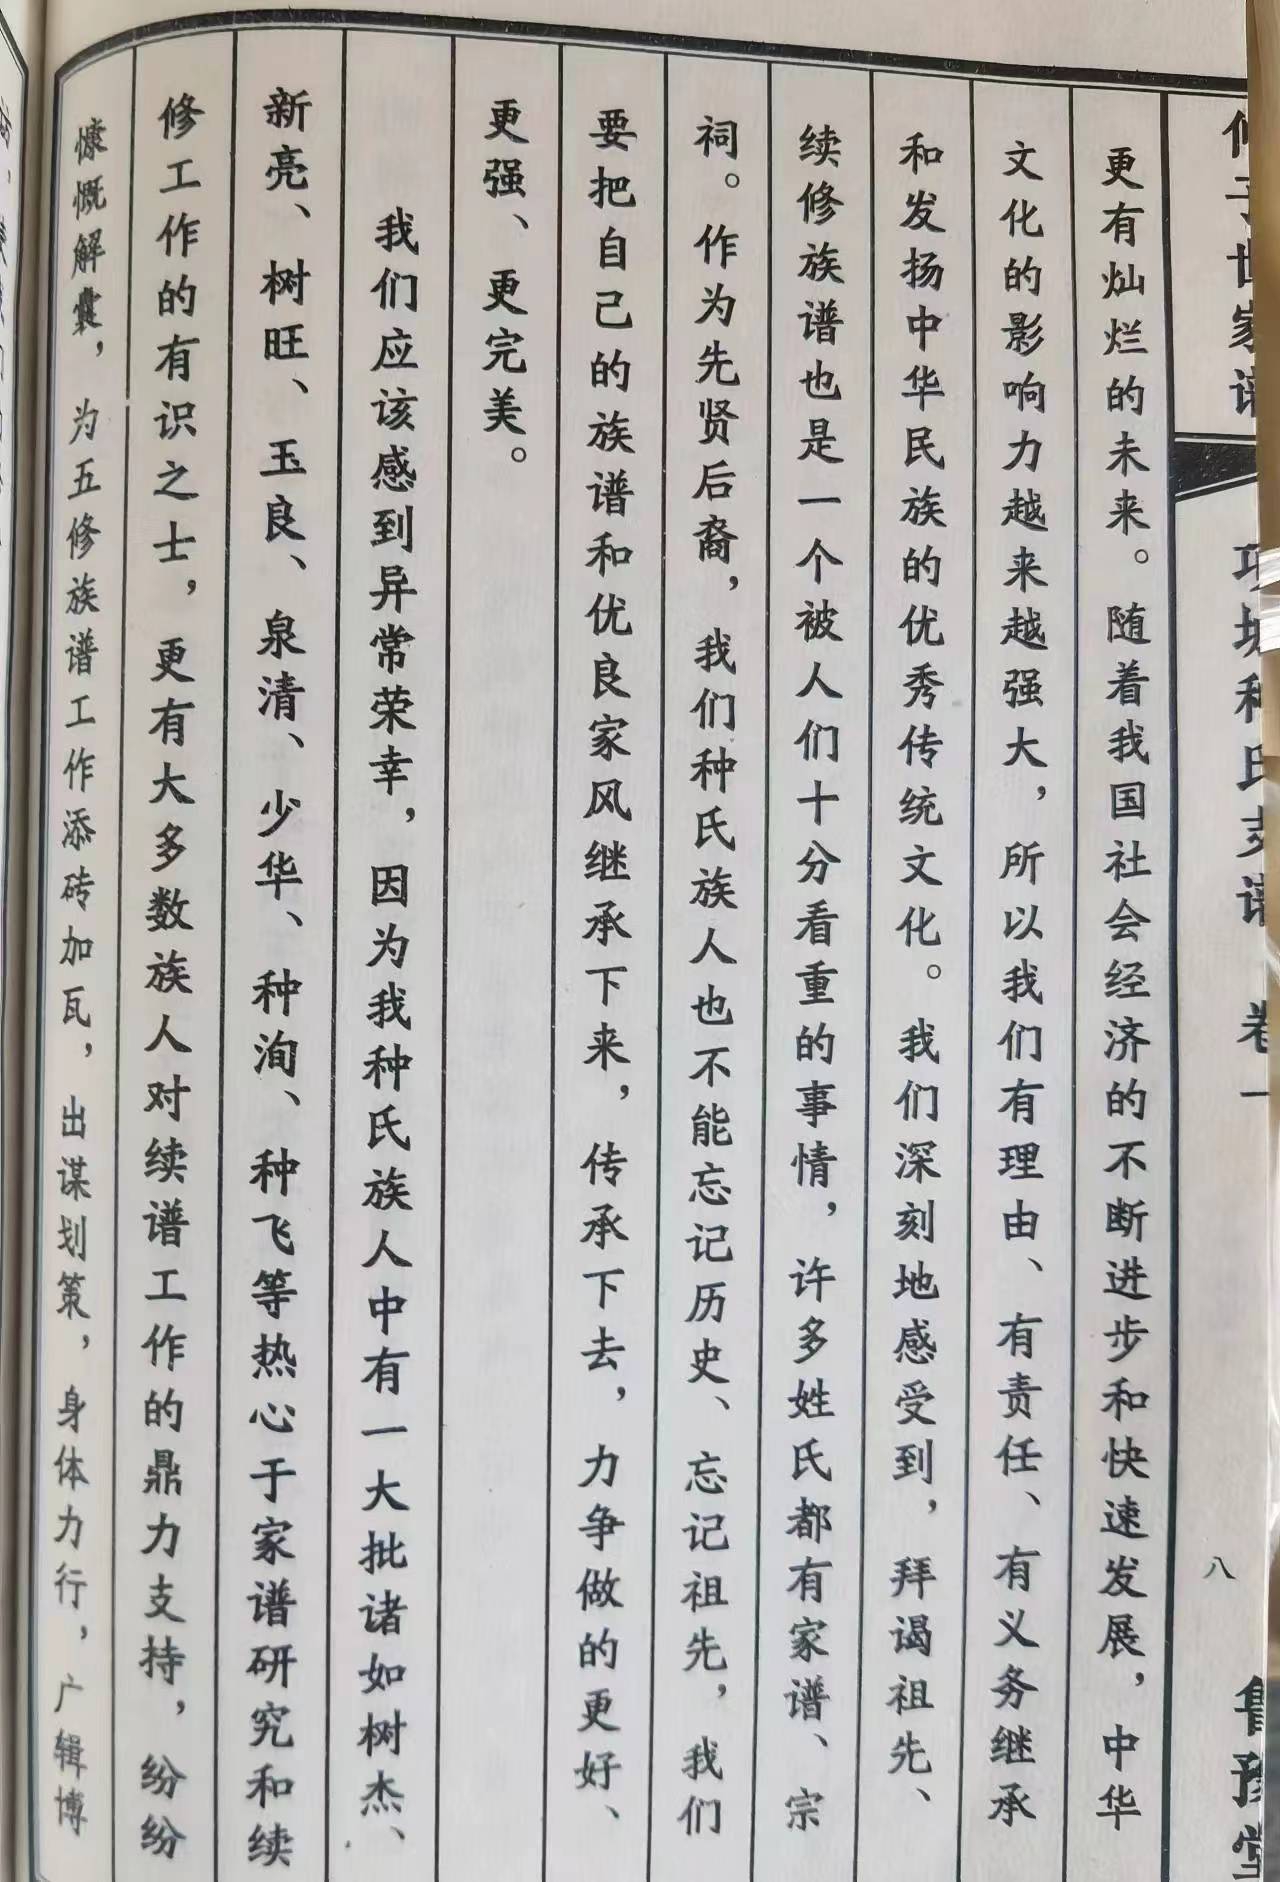 世家谱
种氏支谱 卷一
八
鲁豫堂
更有灿烂的未来。随着我国社会经济的不断进步和快速发展，中华
文化的影响力越来越强大，所以我们有理由、有责任、有义务继承
和发扬中华民族的优秀传统文化。我们深刻地感受到，拜谒祖先、
续修族谱也是一个被人们十分看重的事情，许多姓氏都有家谱、宗
祠。作为先贤后裔，我们种氏族人也不能忘记历史、忘记祖先，我们
要把自己的族谱和优良家风继承下来，传承下去，力争做的更好、
更强、更完美。
我们应该感到异常荣幸，因为我种氏族人中有一大批诸如树杰、
新亮、树旺、玉良、泉清、少华、种洵、种飞等热心于家谱研究和续
修工作的有识之士，更有大多数族人对续谱工作的鼎力支持，纷纷
慷慨解囊，为五修族谱工作添砖加瓦，出谋划策，身体力行，广辑博